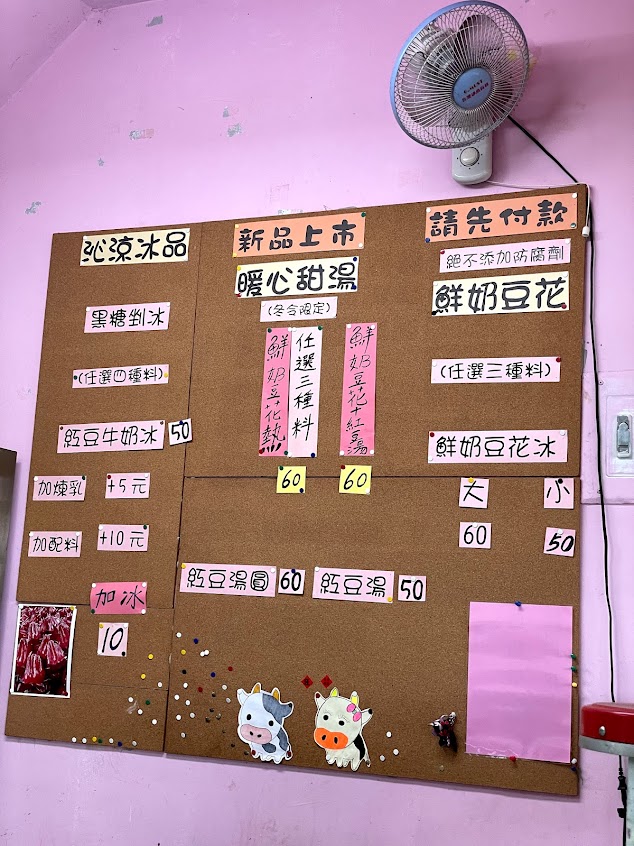 沁涼冰品
黑糖剉冰
(任選四種料)
紅豆牛奶冰 50
加煉乳 +5元
加配料 +10元
加冰
10
新品上市
暖心甜湯
(冬令限定)
鮮奶豆花熱
任選三種料
60
鮮奶豆花+紅豆湯
60
紅豆湯圓 60
紅豆湯 50
請先付款
絕不添加防腐劑
鮮奶豆花
(任選三種料)
鮮奶豆花冰
大 小
60 50